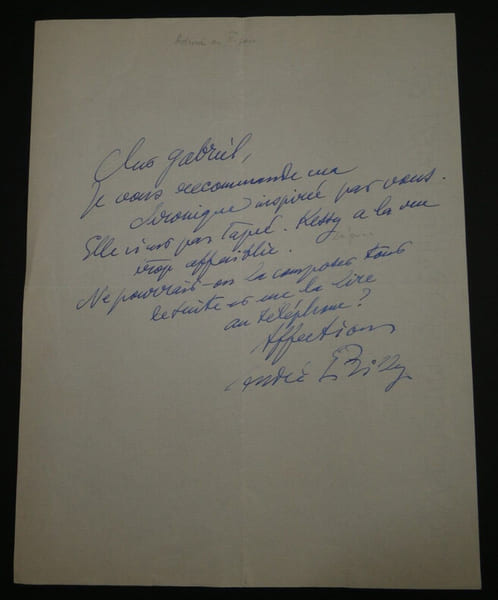 Cher Gabriel,
Je vous recommande ma
chronique inspirée par vous.
Elle n'est pas tapée. Kessy a la vue
trop affaiblie.
Ne pourrait-on la composer tout
de suite et me la lire
au téléphone?
Affection
André Billy